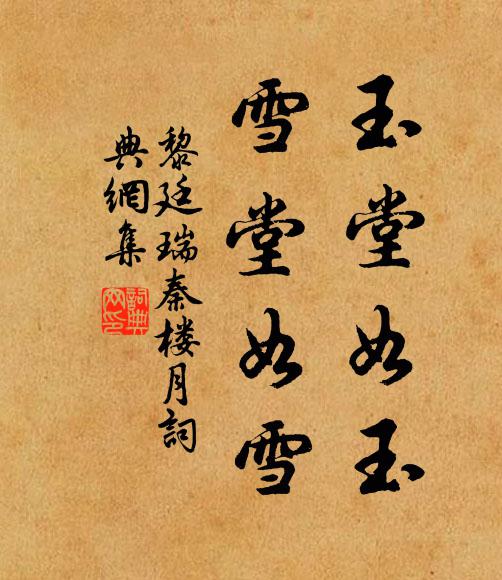 玉堂如玉
雪堂如雪
黎廷瑞秦楼月詞
典網集
詞典
网印